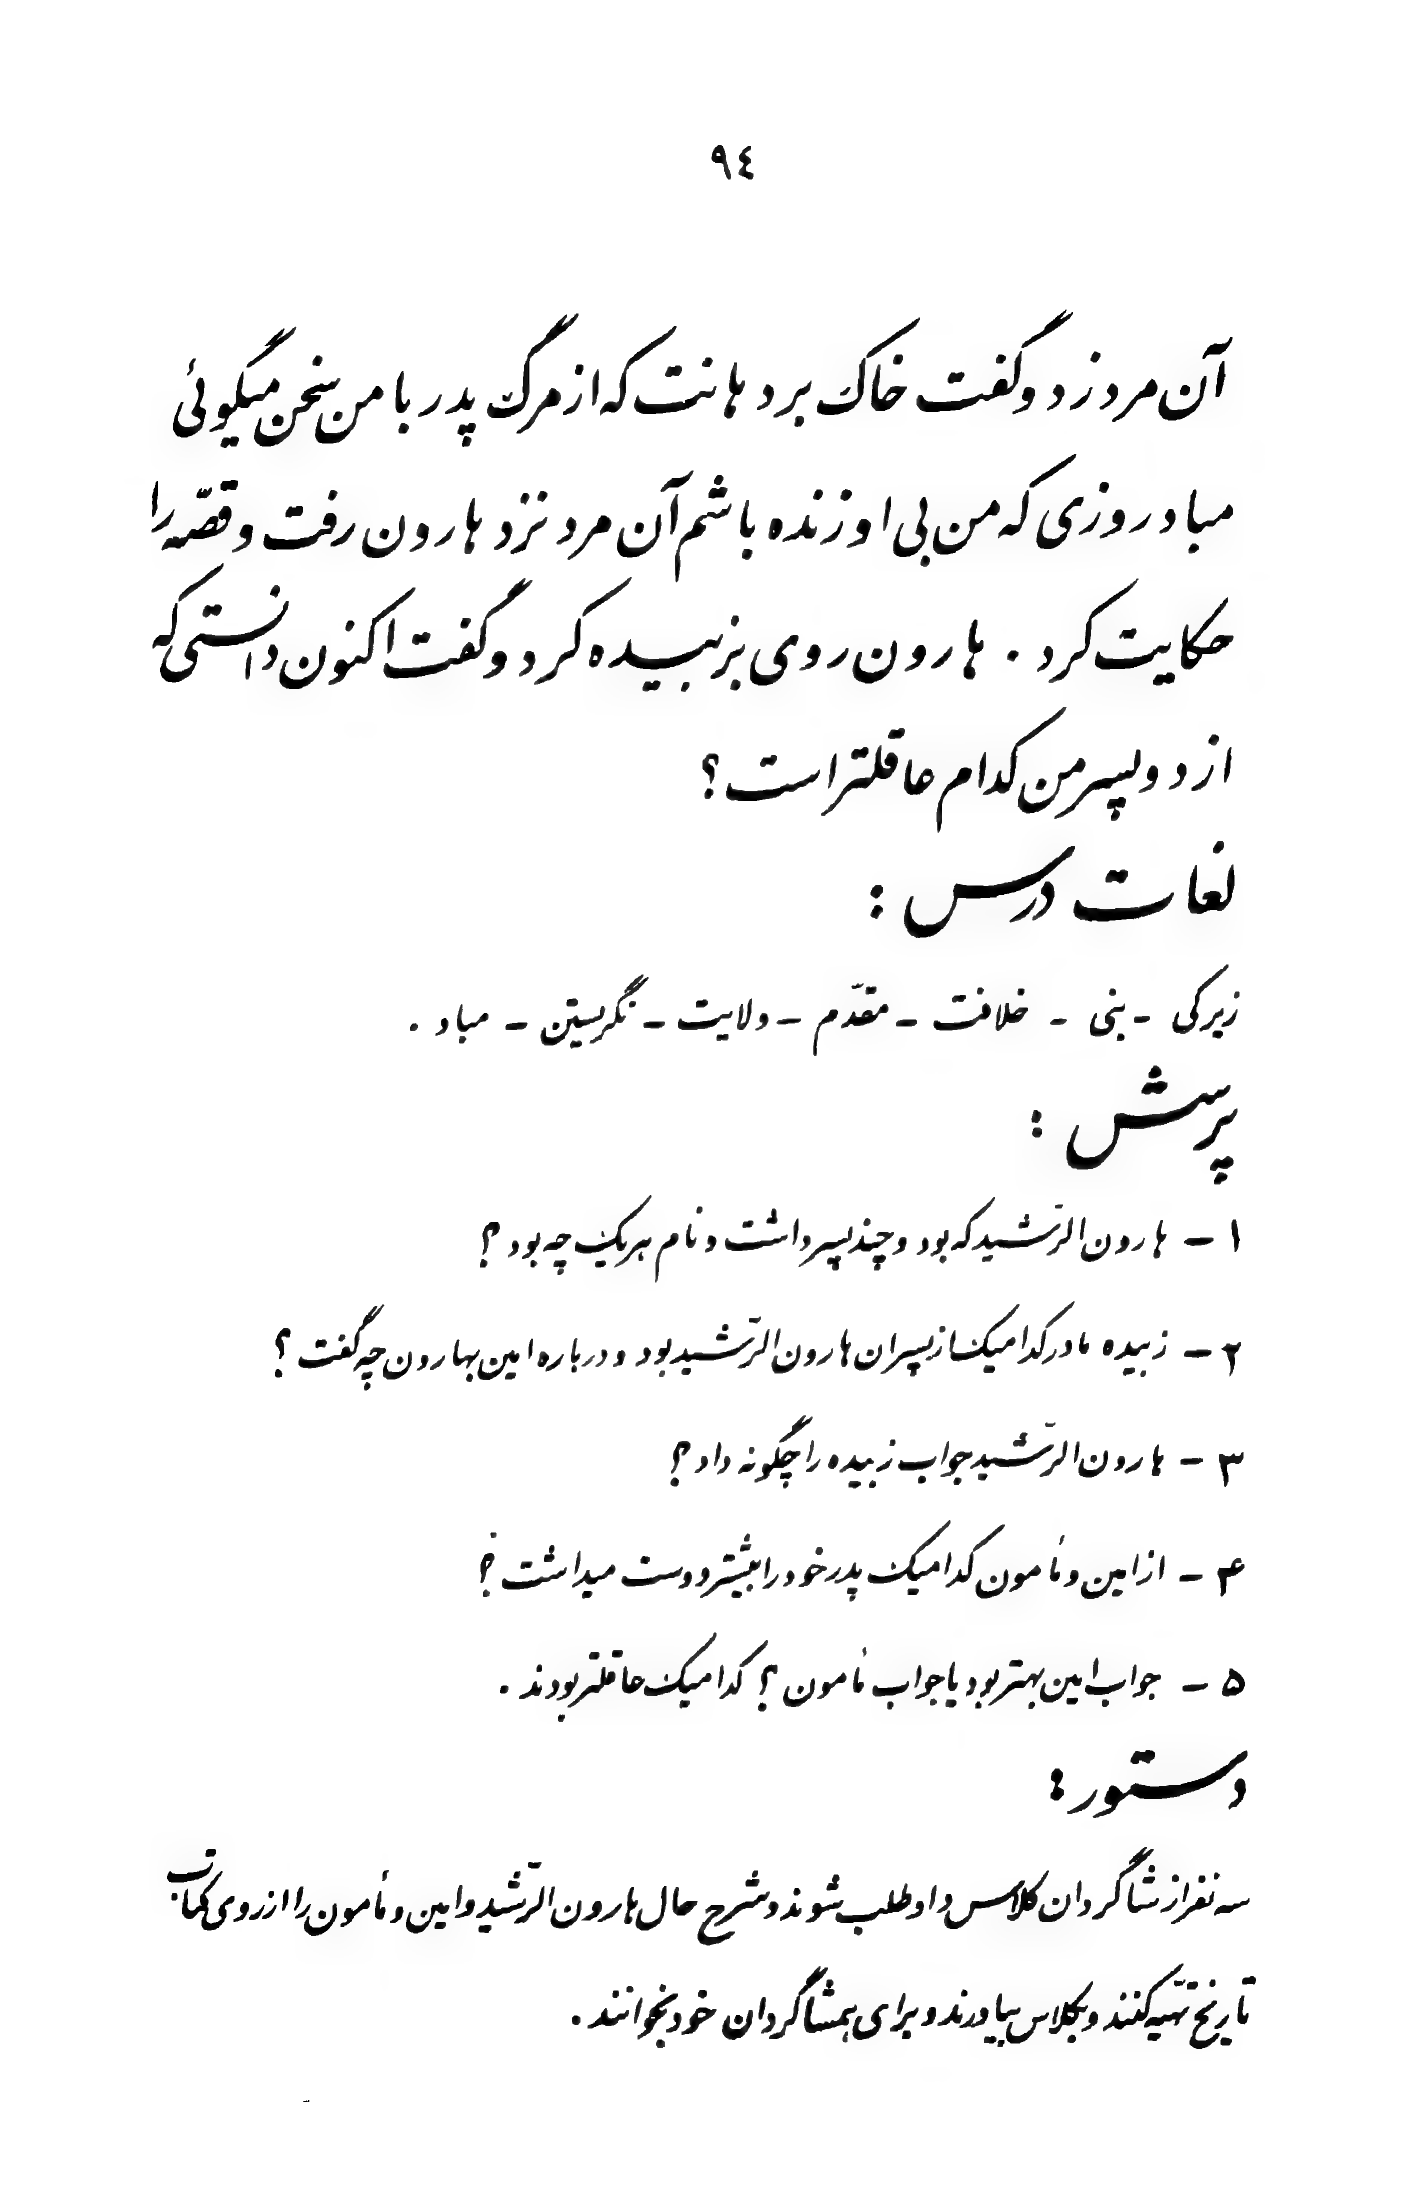 ٩٤
آن مرد زد و گفت خاک بر دهانت که از مرگ پدر با من سخن میگوئی
مباد روزی که من بی او زنده باشم آن مرد نزد هارون رفت و قصّه را
حکایت کرد . هارون روی بزبیده کرد و گفت اکنون دانستی که
از دو پسر من کدام عاقلتر است ؟
لغات درس :
زیرکی - بنی - خلافت - مقدّم - ولایت - نگریستن - مباد .
پرسش :
۱ - هارون الرّشید که بود و چند پسر داشت و نام هریک چه بود ؟
۲ - زبیده مادر کدامیک از پسران هارون الرّشید بود و درباره امین بهارون چه گفت ؟
۳ - هارون الرّشید جواب زبیده را چگونه داد ؟
۴ - از امین و مأمون کدامیک پدر خود را بیشتر دوست میداشت ؟
۵ - جواب امین بهتر بود یا جواب مأمون ؟ کدامیک عاقلتر بودند .
دستور :
سه نفر از شاگردان کلاس داوطلب شوند و شرح حال هارون الرّشید و امین و مأمون را از روی کتاب
تاریخ تهیّه کنند و بکلاس بیاورند و برای همشاگردان خود بخوانند .